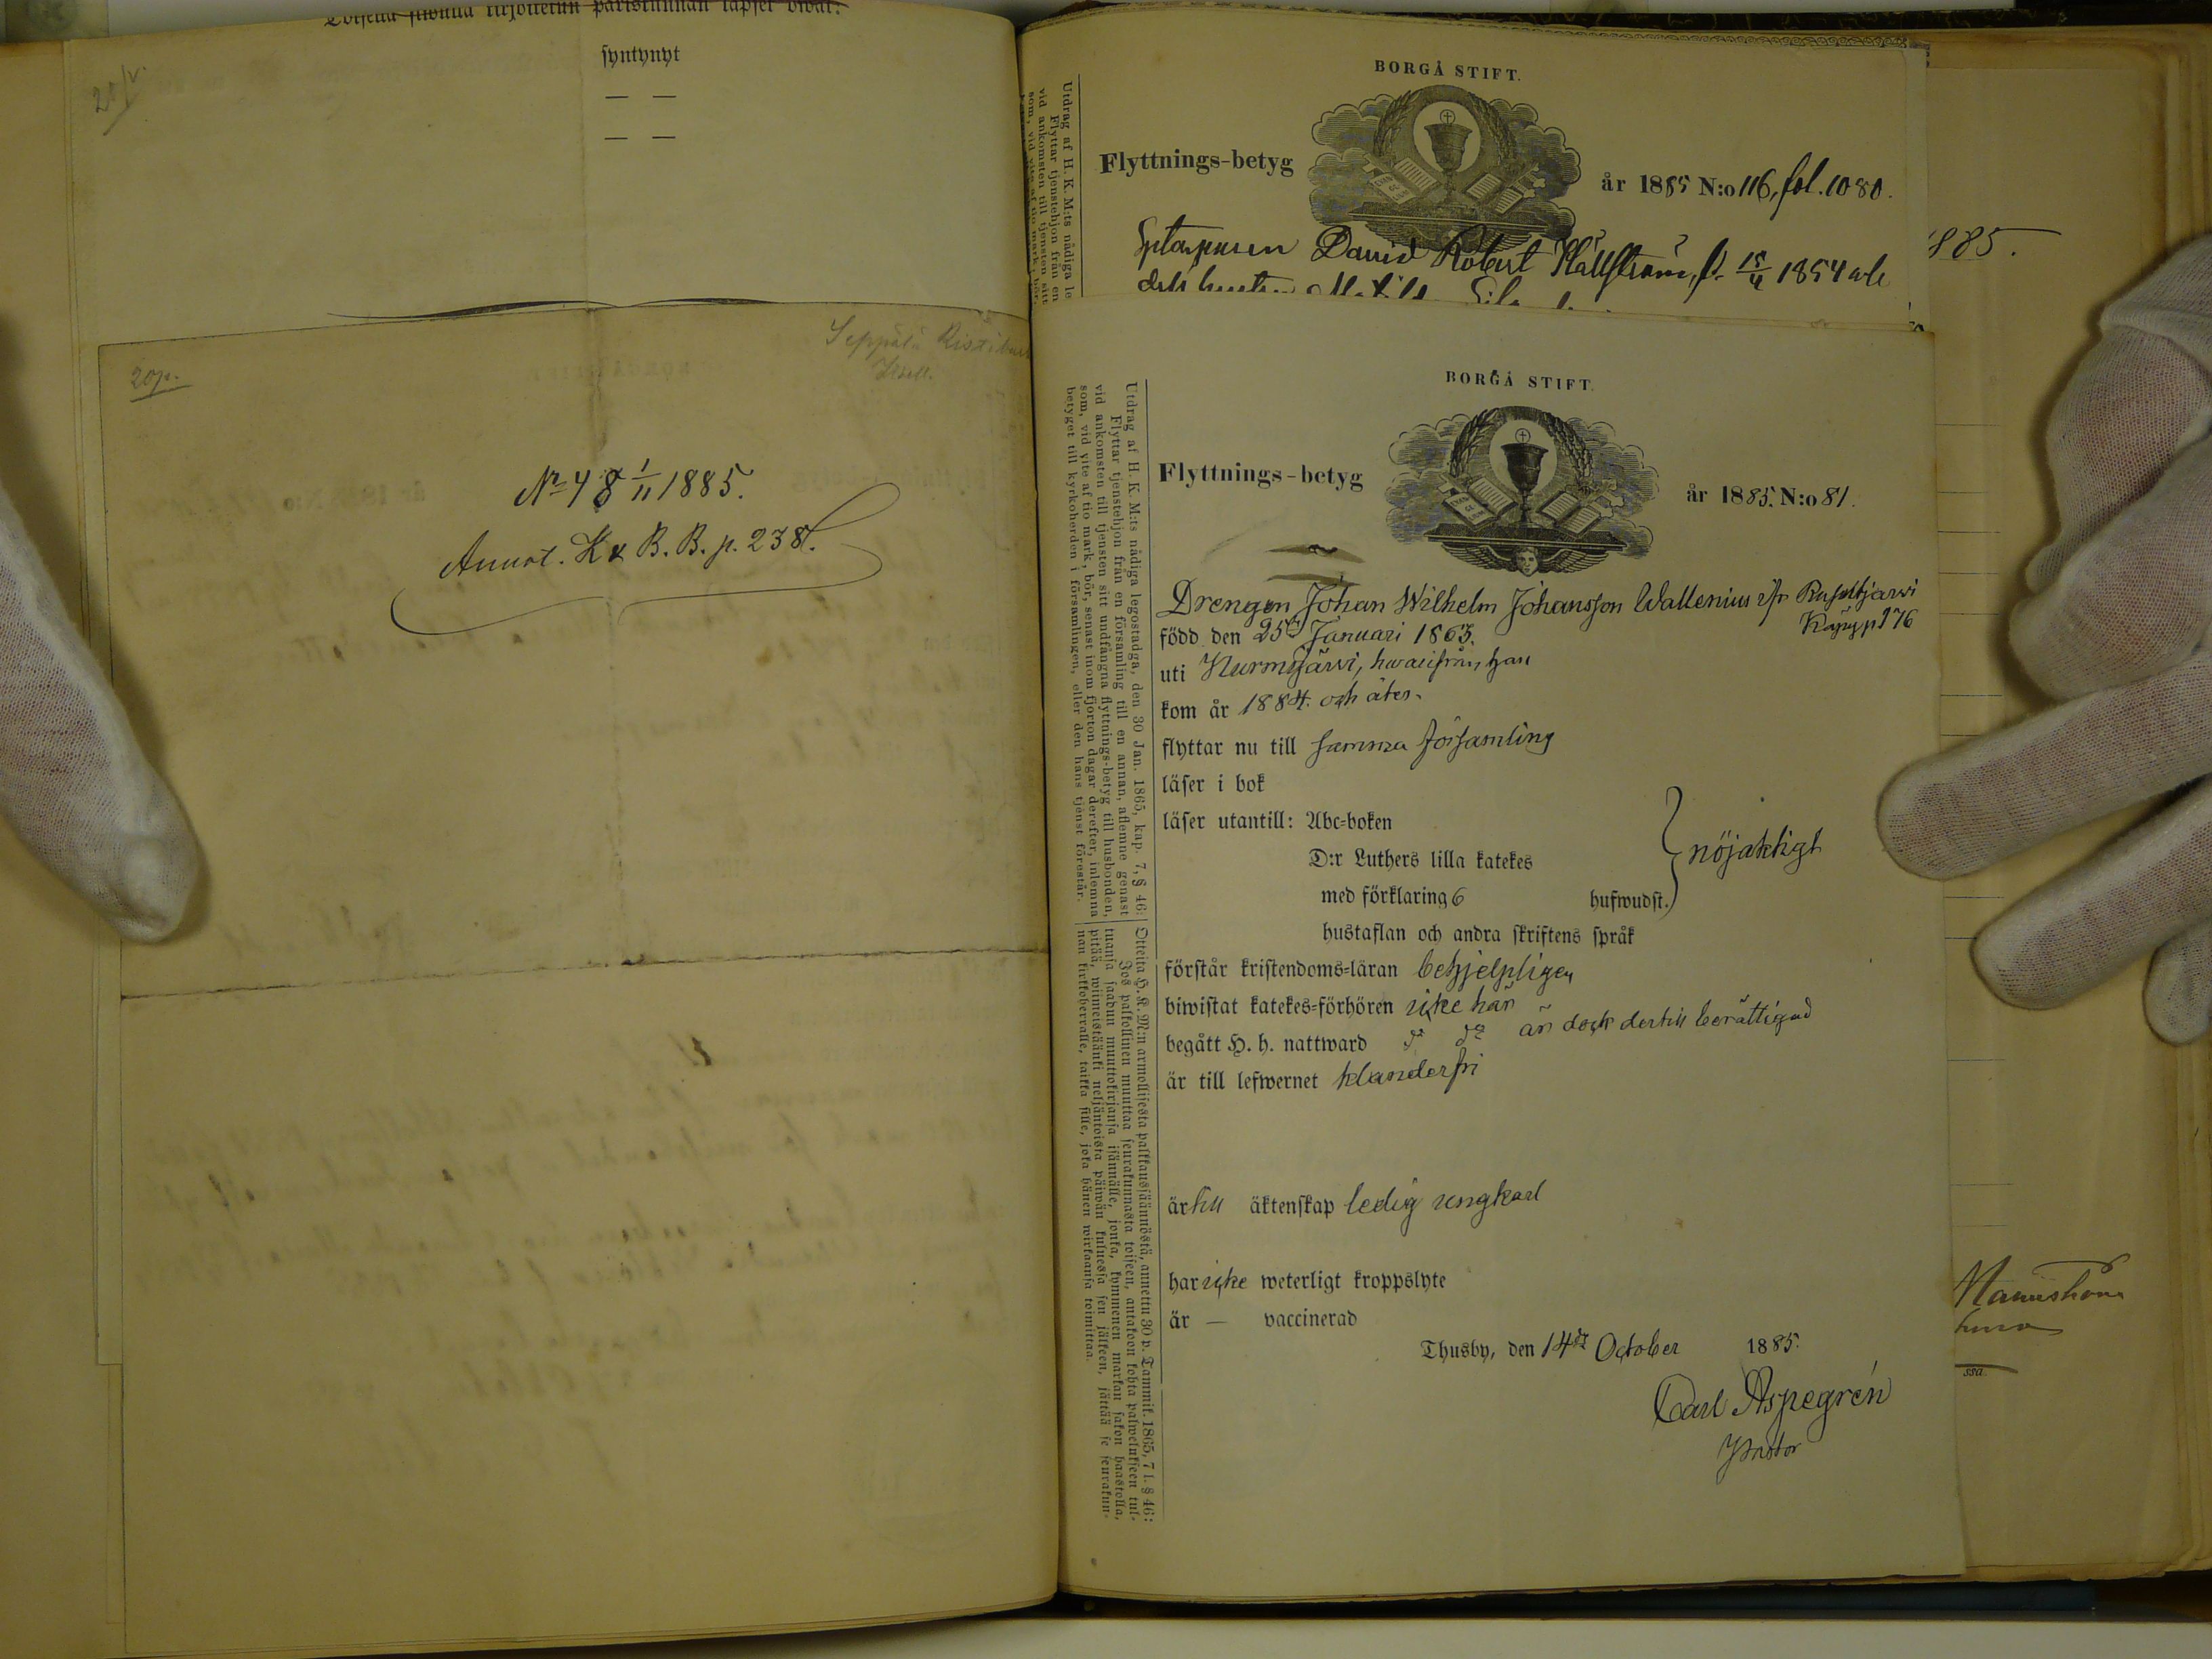 syntynyt
— —
— —
20/v.
20/v.
Seppälä
No 48 1/11 1885.
Annot. K & B. B. p. 238.
BORGÅ STIFT.
Flyttnings-betyg
år 1885 N:o 116, fol. 1080.
David Robert Hällström, f. 15/4 1854
Utdrag af H. K. M:ts nådiga le
Flyttar tjenstehjon från en
vid ankomsten till tjensten sitt
som, vid vite af tio mark, bör,
1885.
BORGÅ STIFT.
Flyttnings-betyg
år 1885. N:o 81.
Drengen Johan Wilhelm Johansson Wallenius ifr. Rusutjärwi
p 176
född den 25 Januari 1863.
uti Nurmijärwi, hwarifrån han
kom år 1884. och åter-
flyttar nu till samma församling
läser i bok
läser utantill: Abc-boken
D:r Luthers lilla katekes
med förklaring 6 hufwudst.
nöjaktigt
hustaflan och andra skriftens språk
förstår kristendoms-läran behjelpligen
biwistat katekes-förhören icke här
begått H. h. nattward do do är dock dertill berättigad
är till lefwernet klanderfri
är till äktenskap ledig ungkarl
har icke weterligt kroppslyte
är — vaccinerad
Thusby, den 14de October 1885.
Carl Aspegrén
Pastor
Utdrag af H. K. M:ts nådiga legostadga, den 30 Jan. 1865, kap. 7, § 46:
Flyttar tjenstehjon från en församling till en annan, aflemne genast
vid ankomsten till tjensten sitt undfångna flyttnings-betyg till husbonden,
som, vid vite af tio mark, bör, senast inom fjorton dagar derefter, inlemna
betyget till kyrkoherden i församlingen, eller den hans tjenst förestår.
Otteita H. K. M:n armollisesta palkkaussäännöstä, annettu 30 p. Tammik. 1865, 7 l. § 46:
Jos palkollinen muuttaa seurakunnasta toiseen, antakoon kohta palwelukseen tul-
tuansa saadun muuttokirjansa isännälle, jonka, kymmenen markan sakon haastolla,
pitää, wiimeistäänki neljäntoista päiwän kuluessa sen jälkeen, jättää se seurakun-
nan kirkkoherralle, taikka sille, joka hänen wirkaansa toimittaa.
ssa.